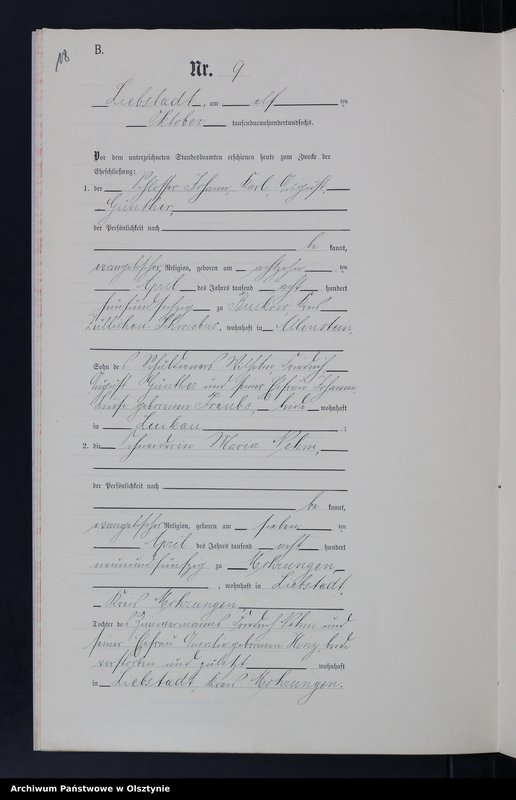 B.
Nr. 9
Liebstadt, am elf ten
Oktober tausendneunhundertundsechs.
Vor dem unterzeichneten Standesbeamten erschienen heute zum Zwecke der
Eheschließung:
1. der Schlosser Johann, Karl, August,
Günther,
der Persönlichkeit nach
be kannt,
evangelischer Religion, geboren am achtzehn ten
April des Jahres tausend acht hundert
fünfundsechzig zu Buckow, Kreis
Züllichau Schwiebus, wohnhaft in Allenstein,
Sohn des Schuldieners Wilhelm, Friedrich
August Günther und seiner Ehefrau Johanna
geborenen beide wohnhaft
in
2. die Schneiderin Maria
der Persönlichkeit nach
be kannt,
evangelischer Religion, geboren am sieben ten
April des Jahres tausend acht hundert
neunundfünfzig zu Mohrungen
, wohnhaft in Liebstadt,
Kreis Mohrungen
Tochter des Zimmermanns Friedrich und
seiner Ehefrau Amalie geborenen beide
verstorben und zuletzt wohnhaft
in Liebstadt, Kreis Mohrungen.
Archiwum Państwowe w Olsztynie